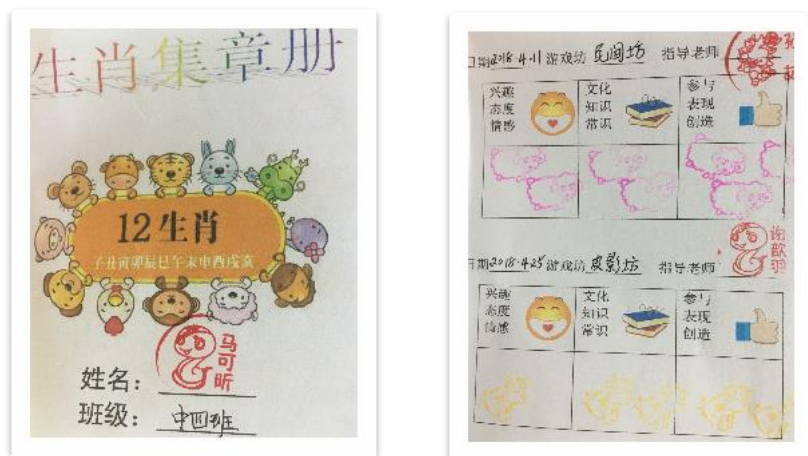 生肖集章册
12生肖
子丑寅卯辰巳午未申酉戌亥
姓名：马可昕
班级：中四班
日期2018.4.11 游戏坊 民间坊 指导老师
兴趣 态度 情感
文化 知识 常识
参与 表现 创造
日期2018.4.25 游戏坊 皮影坊 指导老师 谢歆羽
兴趣 态度 情感
文化 知识 常识
参与 表现 创造